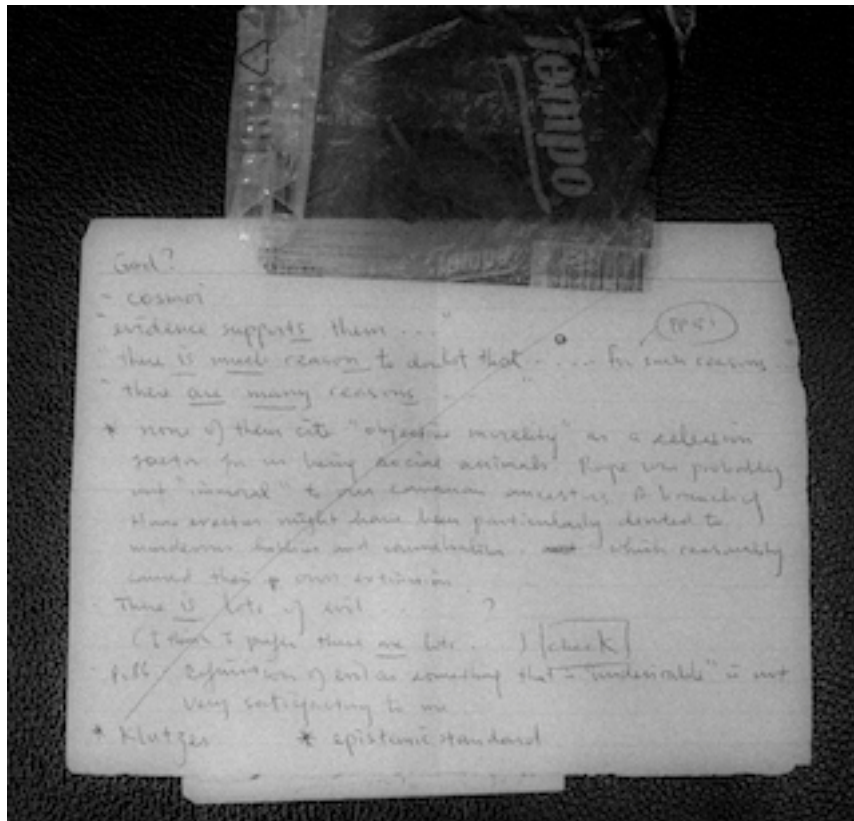 Tempo
God?
- cosmoi
"evidence supports them ..."
PP 51
"there is much reason to doubt that .... for such reasons
"there are many reasons ... "
* none of them cite "objective morality" as a selection
factor for us being social animals. Rape was probably
not "immoral" to our common ancestors. A branch of
Homo erectus might have been particularly devoted to
murderous and which reasonably
caused their own extinction
There is lots of evil ... ?
(I think I prefer there are lots ... ) check
p.86 - Definition of evil as something that is "undesirable" is not
very satisfactory to me
* Klutzes * epistemic standard